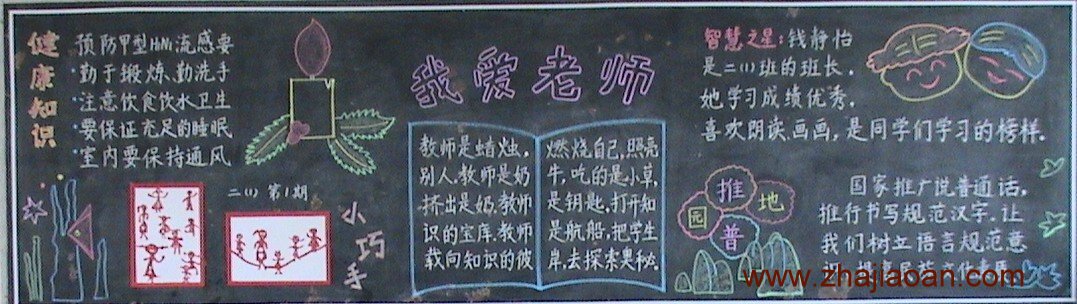 健康知识
预防甲型H1N1流感要
·勤于锻炼、勤洗手
·注意饮食饮水卫生
·要保证充足的睡眠
·室内要保持通风
二(1) 第1期
小巧手
我爱老师
教师是蜡烛,燃烧自己,照亮
别人.教师是奶牛,吃的是小草,
挤出是奶.教师是钥匙,打开知
识的宝库.教师是航船,把学生
载向知识的彼岸,去探索奥秘.
智慧之星:钱静怡
是二(1)班的班长,
她学习成绩优秀,
喜欢朗读画画,是同学们学习的榜样.
推普园地
国家推广说普通话,
推行书写规范汉字.让
我们树立语言规范意
www.zhajiaoan.com